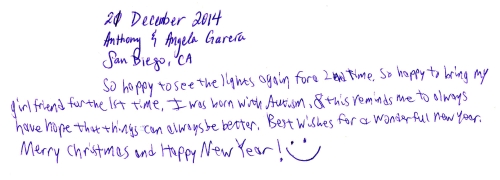 21 December 2014
Anthony & Angela Garcia
San Diego, CA
So happy to see the lights again for a 2nd time. So happy to bring my
girlfriend for the 1st time. I was born with Autism, & this reminds me to always
have hope that things can always be better. Best wishes for a wonderful new year.
Merry Christmas and Happy New Year!